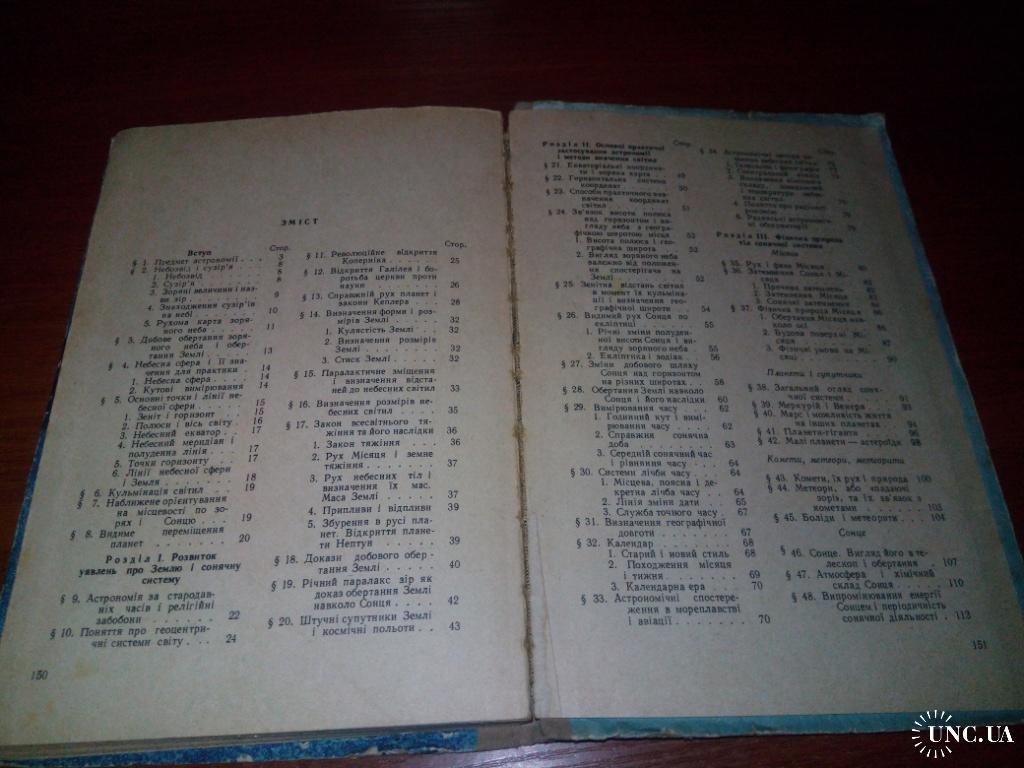 ЗМІСТ
Стор.
Вступ
§ 1. Предмет астрономії 3
§ 2. Небозвід і сузір'я 8
1. Небозвід 8
2. Сузір'я
3. Зоряні величини і наз-
ви зір 9
4. Знаходження сузір'їв
на небі 10
5. Рухома карта зоря-
ного неба 11
§ 3. Добове обертання зоря-
ного неба і обер-
тання Землі 13
§ 4. Небесна сфера і її зна-
чення для практики 14
1. Небесна сфера 14
2. Кутові вимірювання 14
§ 5. Основні точки і лінії не-
бесної сфери 15
1. Зеніт і горизонт 15
2. Полюси і вісь світу 16
3. Небесний екватор 17
4. Небесний меридіан і
полуденна лінія 17
5. Точки горизонту 17
6. Лінії небесної сфери
і Земля 18
§ 6. Кульмінація світил 19
§ 7. Наближене орієнтування
на місцевості по зо-
рях і Сонцю 19
§ 8. Видиме переміщення
планет 20
Розділ І. Розвиток
уявлень про Землю і сонячну
систему
§ 9. Астрономія за стародав-
ніх часів і релігійні
забобони 22
§ 10. Поняття про геоцентри-
чні системи світу 24
150
Стор.
§ 11. Революційне відкриття
Коперніка 25
§ 12. Відкриття Галілея і бо-
ротьба церкви проти
науки 26
§ 13. Справжній рух планет і
закони Кеплера 28
§ 14. Визначення форми і роз-
мірів Землі 32
1. Кулястість Землі 32
2. Визначення розмірів
Землі 32
3. Стиск Землі 32
§ 15. Паралактичне зміщення
і визначення відста-
ней до небесних світил 33
§ 16. Визначення розмірів не-
бесних світил 35
§ 17. Закон всесвітнього тя-
жіння та його наслідки 36
1. Закон тяжіння 36
2. Рух Місяця і земне
тяжіння 37
3. Рух небесних тіл і
визначення їх мас.
Маса Землі 37
4. Припливи і відпливи 39
5. Збурення в русі пла-
нет. Відкриття плане-
ти Нептун 39
§ 18. Докази добового обер-
тання Землі 40
§ 19. Річний паралакс зір як
доказ обертання Землі
навколо Сонця 42
§ 20. Штучні супутники Землі
і космічні польоти 43
Стор.
Розділ ІІ. Основи практичної
застосування астрономії
і методи вивчення світил
§ 21. Екваторіальні координа-
ти і зоряна карта 49
§ 22. Горизонтальна система
координат 50
§ 23. Способи практичного виз-
начення координат
світил 51
§ 24. Зв'язок висоти полюса
над горизонтом і ви-
гляду неба з геогра-
фічною широтою місця 52
1. Висота полюса і гео-
графічна широта 52
2. Вигляд зоряного неба
залежно від положен-
ня спостерігача на
Землі 52
§ 25. Зенітна відстань світил
в момент їх кульміна-
ції і визначення геог-
рафічної широти 54
§ 26. Видимий рух Сонця по
екліптиці 55
1. Річні зміни полуден-
ної висоти Сонця і ви-
гляду зоряного неба 55
2. Екліптика і зодіак 56
§ 27. Зміни добового шляху
Сонця над горизонтом
на різних широтах 58
§ 28. Обертання Землі навколо
Сонця і його наслідки 60
§ 29. Вимірювання часу 62
1. Годинний кут і вимі-
рювання часу 62
2. Справжня сонячна
доба 63
3. Середній сонячний час
і рівняння часу 64
§ 30. Системи лічби часу 64
1. Місцева, поясна і де-
кретна лічба часу 64
2. Лінія зміни дати 65
3. Служба точного часу 67
§ 31. Визначення географічної
довготи 67
§ 32. Календар 68
1. Старий і новий стиль 68
2. Походження місяця
і тижня 69
3. Календарна ера 70
§ 33. Астрономічні спостере-
ження в мореплавстві
і авіації 70
Розділ ІІІ. Фізична природа
тіл сонячної системи
Місяць
§ 35. Рух і фази Місяця
§ 36. Затемнення Сонця і Мі-
сяця
1. Причина затемнень
2. Затемнення Місяця
3. Сонячні затемнення
§ 37. Фізична природа Місяця
1. Обертання Місяця нав-
коло осі
2. Будова поверхні Мі-
сяця
3. Фізичні умови на Мі-
сяці 90
Планети і супутники
§ 38. Загальний огляд соня-
чної системи 91
§ 39. Меркурій і Венера 93
§ 40. Марс і можливість життя
на інших планетах 94
§ 41. Планети-гіганти 96
§ 42. Малі планети — астероїди 98
Комети, метеори, метеорити
§ 43. Комети, їх рух і природа 100
§ 44. Метеори, або «падаючі
зорі», та їх зв'язок з
кометами 103
§ 45. Боліди і метеорити 104
Сонце
§ 46. Сонце. Вигляд його в те-
лескоп і обертання 107
§ 47. Атмосфера і хімічний
склад Сонця 110
§ 48. Випромінювання енергії
Сонцем і періодичність
сонячної діяльності 113
151
UNC.UA